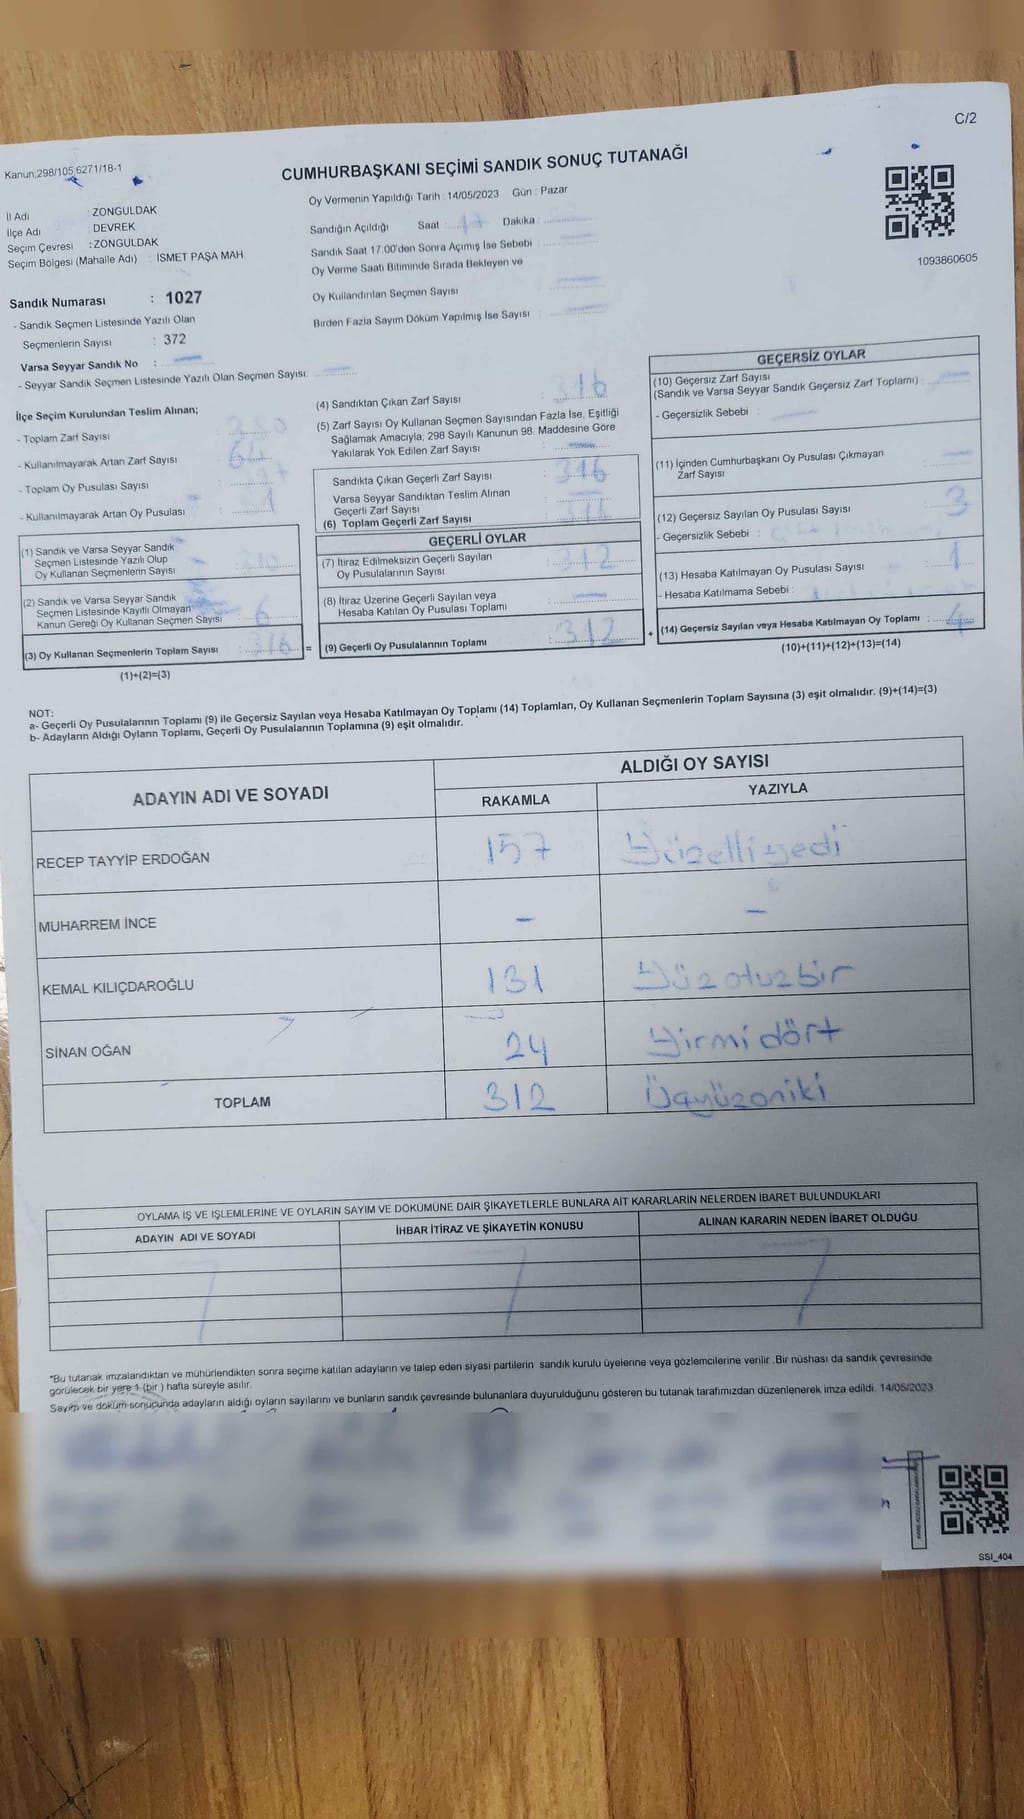 C/2
Kanun,298/105,6271/18-1
CUMHURBAŞKANI SEÇİMİ SANDIK SONUÇ TUTANAĞI
Oy Vermenin Yapıldığı Tarih : 14/05/2023 Gün : Pazar
İl Adı : ZONGULDAK
İlçe Adı : DEVREK
Seçim Çevresi : ZONGULDAK
Seçim Bölgesi (Mahalle Adı) : İSMET PAŞA MAH.
Sandık Numarası : 1027
- Sandık Seçmen Listesinde Yazılı Olan
Seçmenlerin Sayısı : 372
Varsa Seyyar Sandık No : —
- Seyyar Sandık Seçmen Listesinde Yazılı Olan Seçmen Sayısı: —
Sandığın Açıldığı Saat : 17 Dakika :
Sandık Saat 17.00'den Sonra Açımış İse Sebebi :
Oy Verme Saati Bitiminde Sırada Bekleyen ve
Oy Kullandırılan Seçmen Sayısı : —
Birden Fazla Sayım Döküm Yapılmış İse Sayısı : —
1093860605
İlçe Seçim Kurulundan Teslim Alınan;
- Toplam Zarf Sayısı :
- Kullanılmayarak Artan Zarf Sayısı : 64
- Toplam Oy Pusulası Sayısı :
- Kullanılmayarak Artan Oy Pusulası :
(1) Sandık ve Varsa Seyyar Sandık
Seçmen Listesinde Yazılı Olup
Oy Kullanan Seçmenlerin Sayısı : 310
(2) Sandık ve Varsa Seyyar Sandık
Seçmen Listesinde Kayıtlı Olmayan
Kanun Gereği Oy Kullanan Seçmen Sayısı : 6
(3) Oy Kullanan Seçmenlerin Toplam Sayısı : 316 =
(1)+(2)=(3)
(4) Sandıktan Çıkan Zarf Sayısı : 316
(5) Zarf Sayısı Oy Kullanan Seçmen Sayısından Fazla İse, Eşitliği
Sağlamak Amacıyla, 298 Sayılı Kanunun 98. Maddesine Göre
Yakılarak Yok Edilen Zarf Sayısı : —
Sandıkta Çıkan Geçerli Zarf Sayısı : 316
Varsa Seyyar Sandıktan Teslim Alınan
Geçerli Zarf Sayısı : —
(6) Toplam Geçerli Zarf Sayısı : 316
GEÇERLİ OYLAR
(7) İtiraz Edilmeksizin Geçerli Sayılan
Oy Pusulalarının Sayısı : 312
(8) İtiraz Üzerine Geçerli Sayılan veya
Hesaba Katılan Oy Pusulası Toplamı : —
(9) Geçerli Oy Pusulalarının Toplamı : 312 +
GEÇERSİZ OYLAR
(10) Geçersiz Zarf Sayısı
(Sandık ve Varsa Seyyar Sandık Geçersiz Zarf Toplamı) : —
- Geçersizlik Sebebi : —
(11) İçinden Cumhurbaşkanı Oy Pusulası Çıkmayan
Zarf Sayısı : —
(12) Geçersiz Sayılan Oy Pusulası Sayısı : 3
- Geçersizlik Sebebi :
(13) Hesaba Katılmayan Oy Pusulası Sayısı : 1
- Hesaba Katılmama Sebebi :
(14) Geçersiz Sayılan veya Hesaba Katılmayan Oy Toplamı : 4
(10)+(11)+(12)+(13)=(14)
NOT:
a- Geçerli Oy Pusulalarının Toplamı (9) ile Geçersiz Sayılan veya Hesaba Katılmayan Oy Toplamı (14) Toplamları, Oy Kullanan Seçmenlerin Toplam Sayısına (3) eşit olmalıdır. (9)+(14)=(3)
b- Adayların Aldığı Oyların Toplamı, Geçerli Oy Pusulalarının Toplamına (9) eşit olmalıdır.
ADAYIN ADI VE SOYADI
ALDIĞI OY SAYISI
RAKAMLA YAZIYLA
RECEP TAYYİP ERDOĞAN 157 Yüzelliyedi
MUHARREM İNCE - -
KEMAL KILIÇDAROĞLU 131 Yüzotuzbir
SİNAN OĞAN 24 Yirmidört
TOPLAM 312 Üçyüzoniki
OYLAMA İŞ VE İŞLEMLERİNE VE OYLARIN SAYIM VE DÖKÜMÜNE DAİR ŞİKAYETLERLE BUNLARA AİT KARARLARIN NELERDEN İBARET BULUNDUKLARI
ADAYIN ADI VE SOYADI İHBAR İTİRAZ VE ŞİKAYETİN KONUSU ALINAN KARARIN NEDEN İBARET OLDUĞU
*Bu tutanak imzalandıktan ve mühürlendikten sonra seçime katılan adayların ve talep eden siyasi partilerin sandık kurulu üyelerine veya gözlemcilerine verilir .Bir nüshası da sandık çevresinde
görülecek bir yere 1 (bir ) hafta süreyle asılır.
Sayım ve döküm sonucunda adayların aldığı oyların sayılarını ve bunların sandık çevresinde bulunanlara duyurulduğunu gösteren bu tutanak tarafımızdan düzenlenerek imza edildi. 14/05/2023
SSİ_404